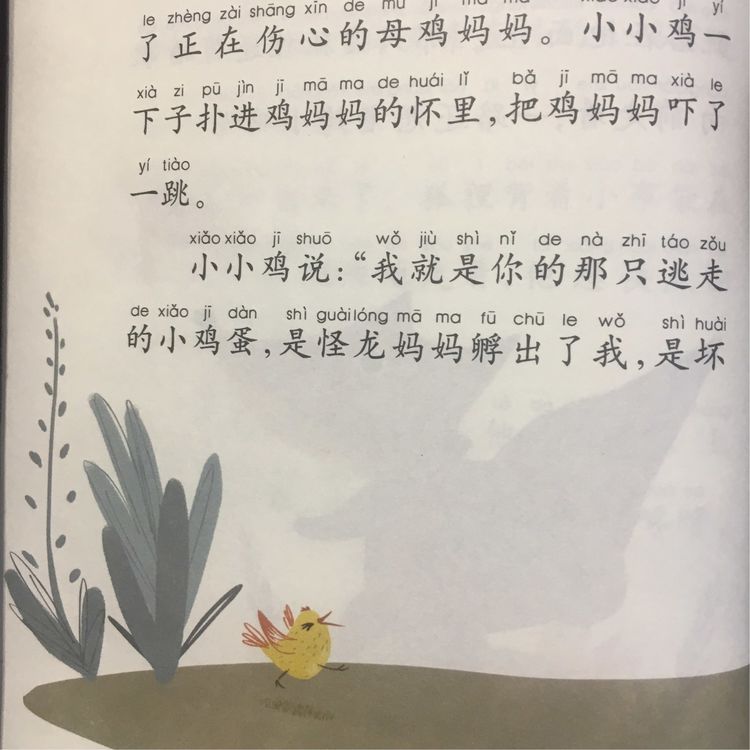 le zhèng zài shāng xīn de mǔ jī mā ma xiǎo xiǎo jī yí
了正在伤心的母鸡妈妈。小小鸡一
xià zi pū jìn jī mā ma de huái lǐ bǎ jī mā ma xià le
下子扑进鸡妈妈的怀里,把鸡妈妈吓了
yí tiào
一跳。
xiǎo xiǎo jī shuō wǒ jiù shì nǐ de nà zhī táo zǒu
小小鸡说:“我就是你的那只逃走
de xiǎo jī dàn shì guài lóng mā ma fū chū le wǒ shì huài
的小鸡蛋,是怪龙妈妈孵出了我,是坏